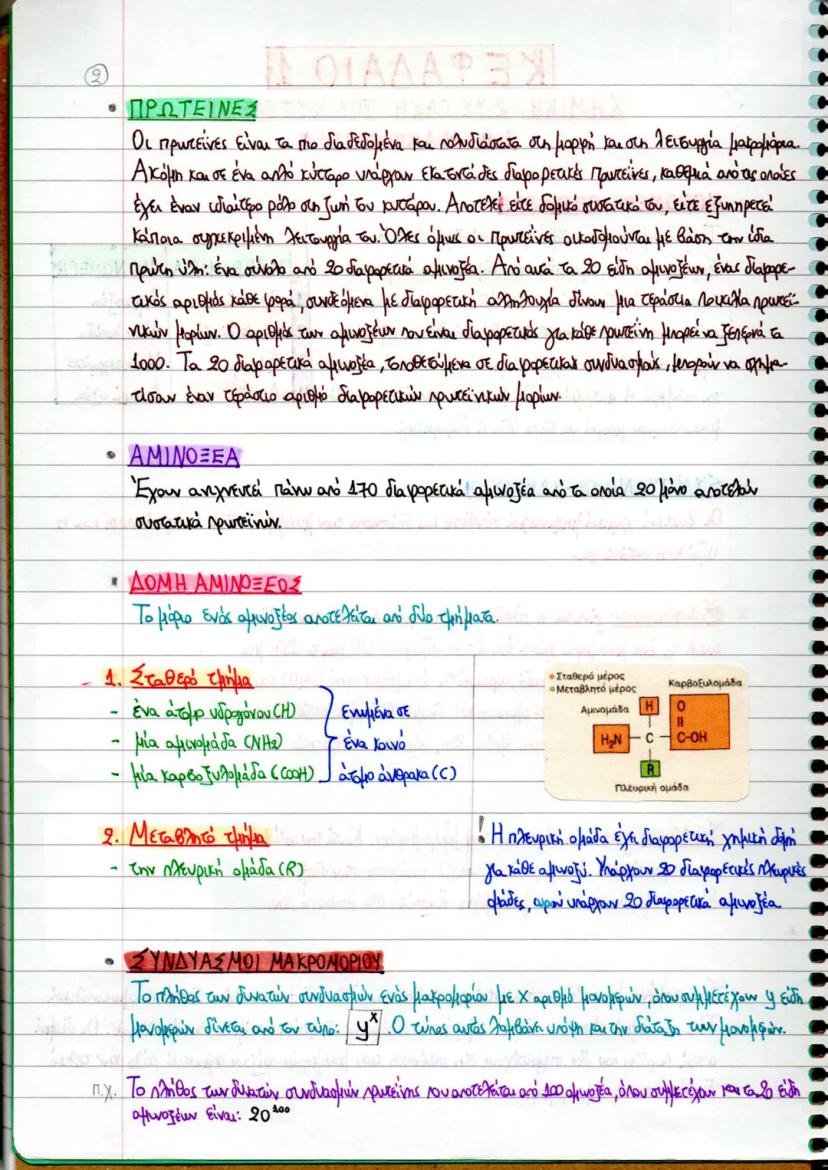 2
• ΠΡΩΤΕΙΝΕΣ
Οι πρωτεΐνες είναι τα πιο διαδεδομένα και πολυδιάστατα στη μορφή και στη λειτουργία μακρομόρια.
Ακόμη και σε ένα απλό κύτταρο υπάρχουν εκατοντάδες διαφορετικές πρωτεΐνες, καθεμιά από τις οποίες
έχει έναν ιδιαίτερο ρόλο στη ζωή του κυττάρου. Αποτελεί είτε δομικό συστατικό του, είτε εξυπηρετεί
κάποια συγκεκριμένη λειτουργία του. Όλες όμως οι πρωτεΐνες οικοδομούνται με βάση την ίδια
πρώτη ύλη: ένα σύνολο από 20 διαφορετικά αμινοξέα. Από αυτά τα 20 είδη αμινοξέων, ένας διαφορε-
τικός αριθμός κάθε φορά, συνδεόμενα με διαφορετική αλληλουχία δίνουν μια τεράστια ποικιλία πρωτεϊ-
νικών μορίων. Ο αριθμός των αμινοξέων που είναι διαφορετικός για κάθε πρωτεΐνη μπορεί να ξεπερνά τα
1000. Τα 20 διαφορετικά αμινοξέα, τοποθετούμενα σε διαφορετικούς συνδυασμούς, μπορούν να σχημα-
τίσουν έναν τεράστιο αριθμό διαφορετικών πρωτεϊνικών μορίων.
• ΑΜΙΝΟΞΕΑ
Έχουν ανιχνευτεί πάνω από 170 διαφορετικά αμινοξέα από τα οποία 20 μόνο αποτελούν
συστατικά πρωτεϊνών.
• ΔΟΜΗ ΑΜΙΝΟΞΕΟΣ
Το μόριο ενός αμινοξέος αποτελείται από δύο τμήματα.
1. Σταθερό τμήμα
- ένα άτομο υδρογόνου (H)
- μία αμινομάδα (NH2)
- μία καρβοξυλομάδα (COOH)
ενωμένα σε
ένα κοινό
άτομο άνθρακα (C)
Σταθερό μέρος
Μεταβλητό μέρος
Καρβοξυλομάδα
Αμινομάδα
H
O
||
H₂N – C – C–OH
R
Πλευρική ομάδα
2. Μεταβλητό τμήμα
- την πλευρική ομάδα (R)
! Η πλευρική ομάδα έχει διαφορετική χημική δομή
για κάθε αμινοξύ. Υπάρχουν 20 διαφορετικές πλευρικές
ομάδες, αφού υπάρχουν 20 διαφορετικά αμινοξέα
• ΣΥΝΔΥΑΣΜΟΙ ΜΑΚΡΟΜΟΡΙΟΥ
Το πλήθος των δυνατών συνδυασμών ενός μακρομορίου με x αριθμό μονομερών, όπου συμμετέχουν y είδη
μονομερών δίνεται από τον τύπο: y^x. Ο τύπος αυτός λαμβάνει υπόψη και την διάταξη των μονομερών.
π.χ. Το πλήθος των δυνατών συνδυασμών πρωτεΐνης που αποτελείται από 100 αμινοξέα, όπου συμμετέχουν και τα 20 είδη
αμινοξέων είναι: 20^100